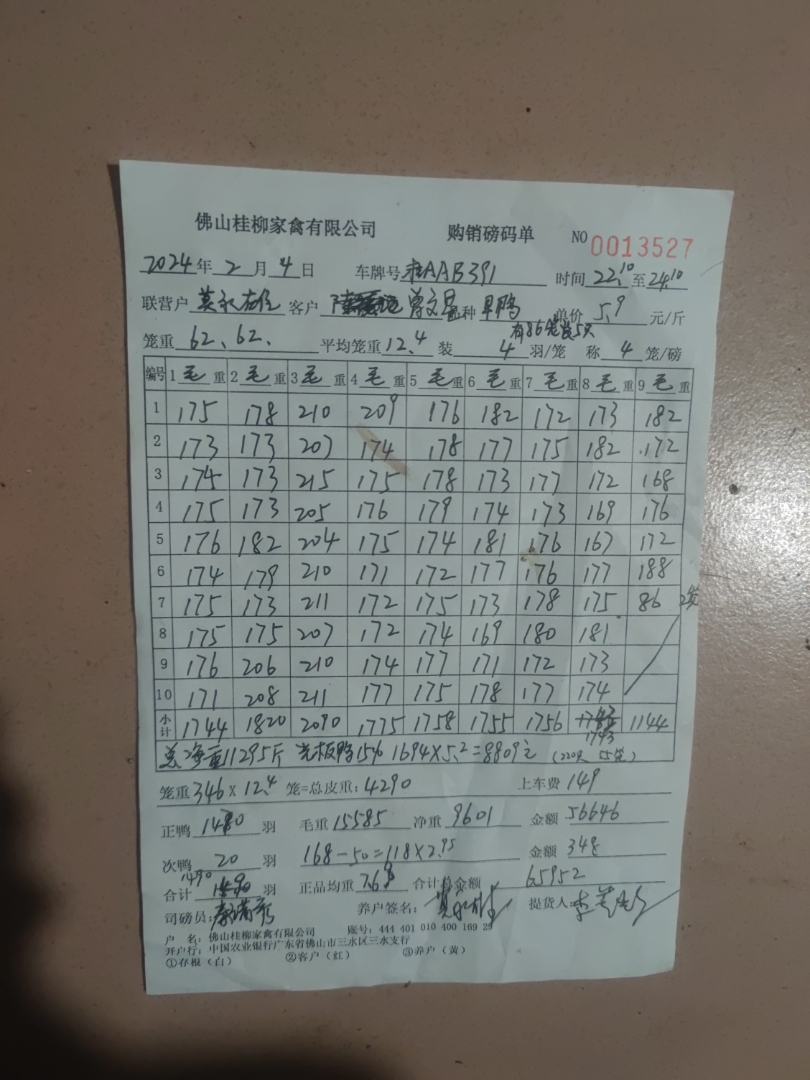 佛山桂柳家禽有限公司 购销磅码单 NO 0013527
2024年2月4日 车牌号 桂AAB391 时间 22:10 至 24:10
联营户 客户 曾文 种 单价 5.9 元/斤
有86笼装5只
笼重 62、62、 平均笼重 12.4 装 4 羽/笼 称 4 笼/磅
编号 1毛重 2毛重 3毛重 4毛重 5毛重 6毛重 7毛重 8毛重 9毛重
1 175 178 210 209 176 182 172 173 182
2 173 173 207 174 178 177 175 182 172
3 174 173 215 175 178 173 177 172 168
4 175 173 205 176 179 174 173 169 176
5 176 182 204 175 174 181 176 167 172
6 174 179 210 171 172 177 176 177 188
7 175 173 211 172 175 173 178 175 86 2笼
8 175 175 207 172 174 169 180 181
9 176 206 210 174 177 171 172 173
10 171 208 211 177 175 178 177 174
小计 1744 1820 2090 1775 1758 1755 1756 1743 1144
总净重11295斤 光板鸭15% 1694×5.2=8809元 (220只 55笼)
笼重 346×12.4 笼=总皮重: 4290 上车费 149
正鸭 1480 羽 毛重 15585 净重 9601 金额 56646
次鸭 20 羽 168-50=118×2.95 金额 348
1490
合计 羽 正品均重 7.68 合计总金额 65952
司磅员: 养户签名: 提货人:
户 名: 佛山桂柳家禽有限公司 账号: 444 401 010 400 169 29
开户行: 中国农业银行广东省佛山市三水区三水支行
①存根(白) ②客户(红) ③养户(黄)